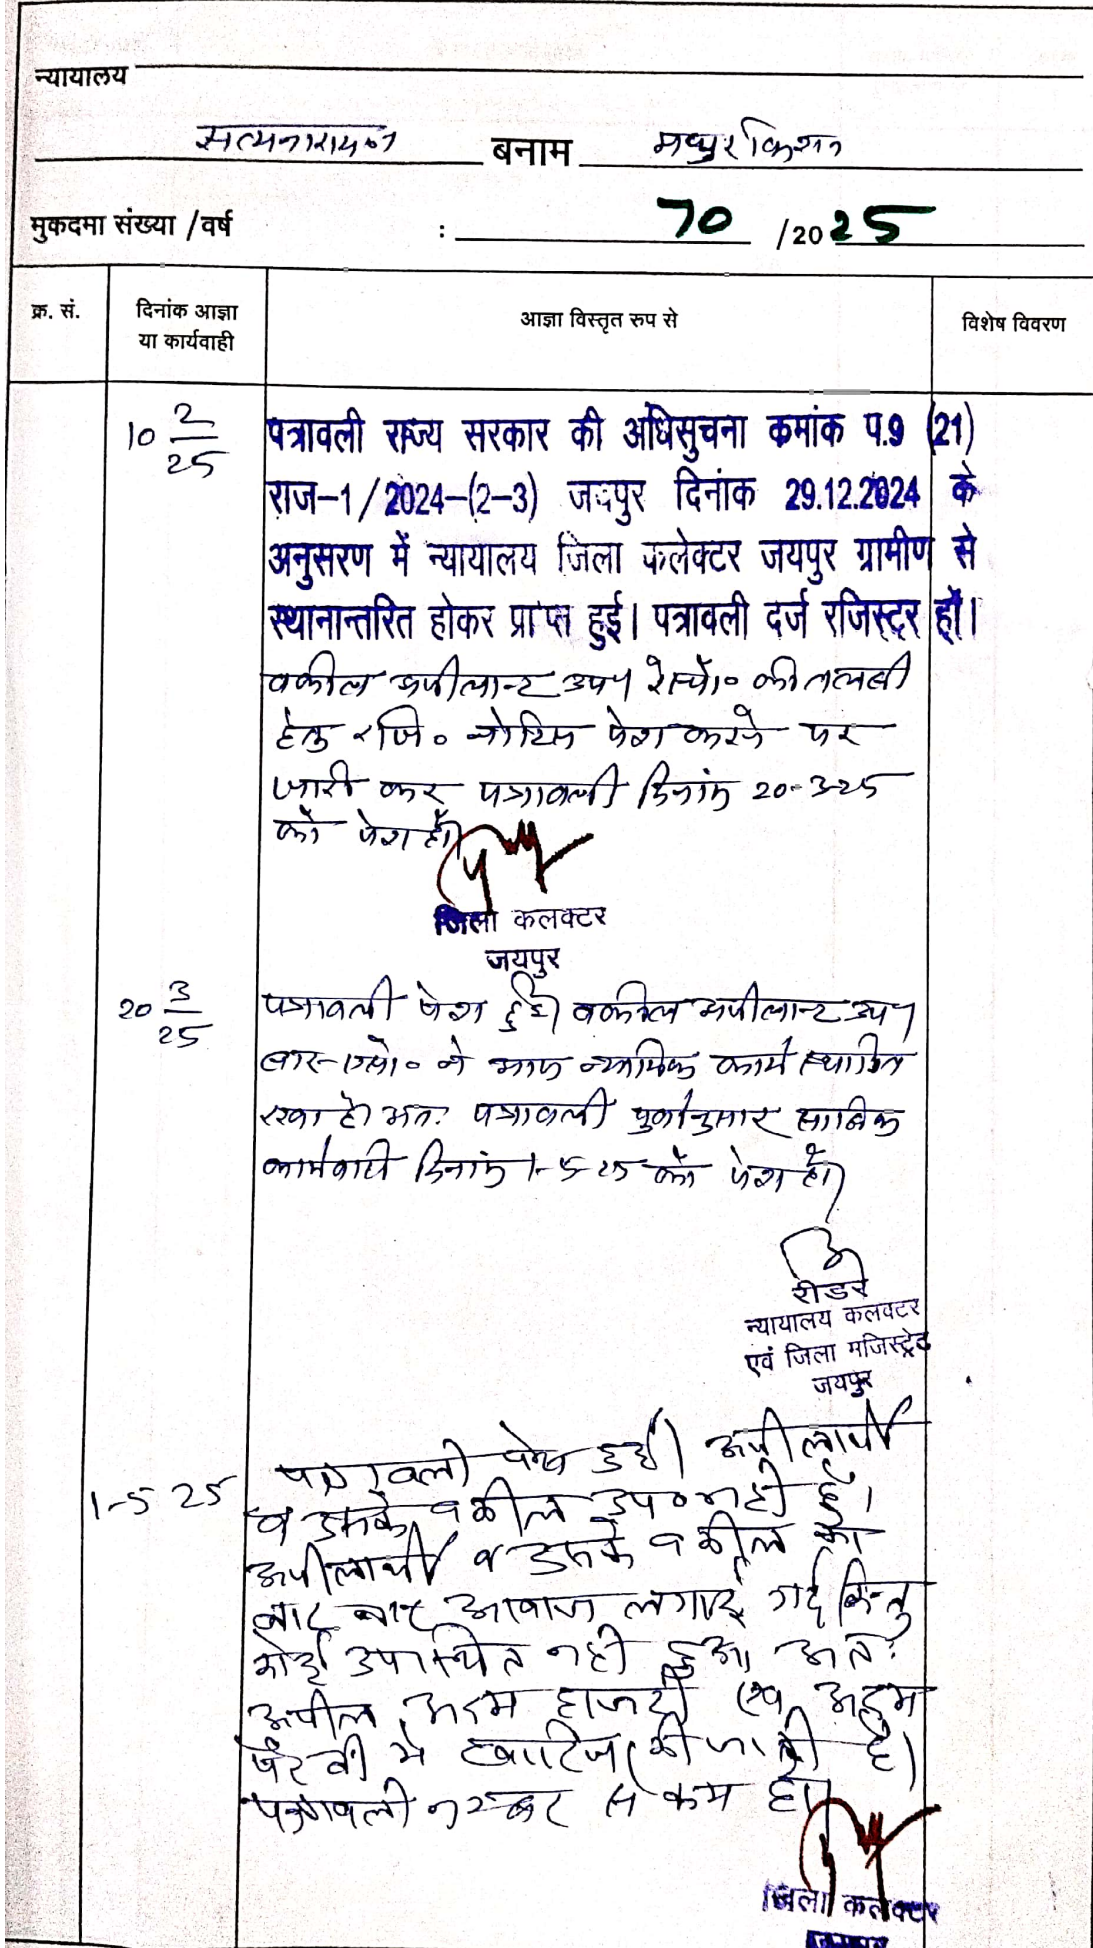 न्यायालय
सत्यनारायण बनाम मधुर किशन
मुकदमा संख्या /वर्ष : 70 /2025
क्र. सं. दिनांक आज्ञा या कार्यवाही आज्ञा विस्तृत रुप से विशेष विवरण
10 2/25 पत्रावली राज्य सरकार की अधिसुचना कमांक प.9 (21)
राज-1/2024-(2-3) जयपुर दिनांक 29.12.2024 के
अनुसरण में न्यायालय जिला कलेक्टर जयपुर ग्रामीण से
स्थानान्तरित होकर प्राप्त हुई। पत्रावली दर्ज रजिस्टर हो।
वकील अपीलान्ट उप। रेस्पो० की तलबी
हेतु रजि० नोटिस पेश करने पर
जारी कर पत्रावली दिनांक 20-3-25
को पेश हो।
जिला कलक्टर
जयपुर
20 3/25 पत्रावली पेश हुई। वकील अपीलान्ट उप।
बार एसो० ने आज न्यायिक कार्य स्थगित
रखा है। अतः पत्रावली पुर्वानुसार साबिक
कार्यवाही दिनांक 1-5-25 को पेश हो।
रीडर
न्यायालय कलक्टर
एवं जिला मजिस्ट्रेट
जयपुर
1-5 25 पत्रावली पेश हुई। अपीलार्थी
व उसके वकील उप० नही है।
अपीलार्थी व उसके वकील को
बार बार आवाज लगाई गई किन्तु
कोई उपस्थित नही हुआ, अतः
अपील अदम हाजरी एवं अदम
पैरवी मे खारिज की जाती है।
पत्रावली नम्बर से कम हो।
जिला कलक्टर
जयपुर